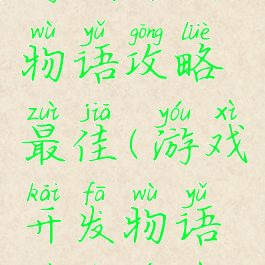 wù yǔ gōng lüè
物语攻略
zuì jiā yóu xì
最佳(游戏
kāi fā wù yǔ
开发物语